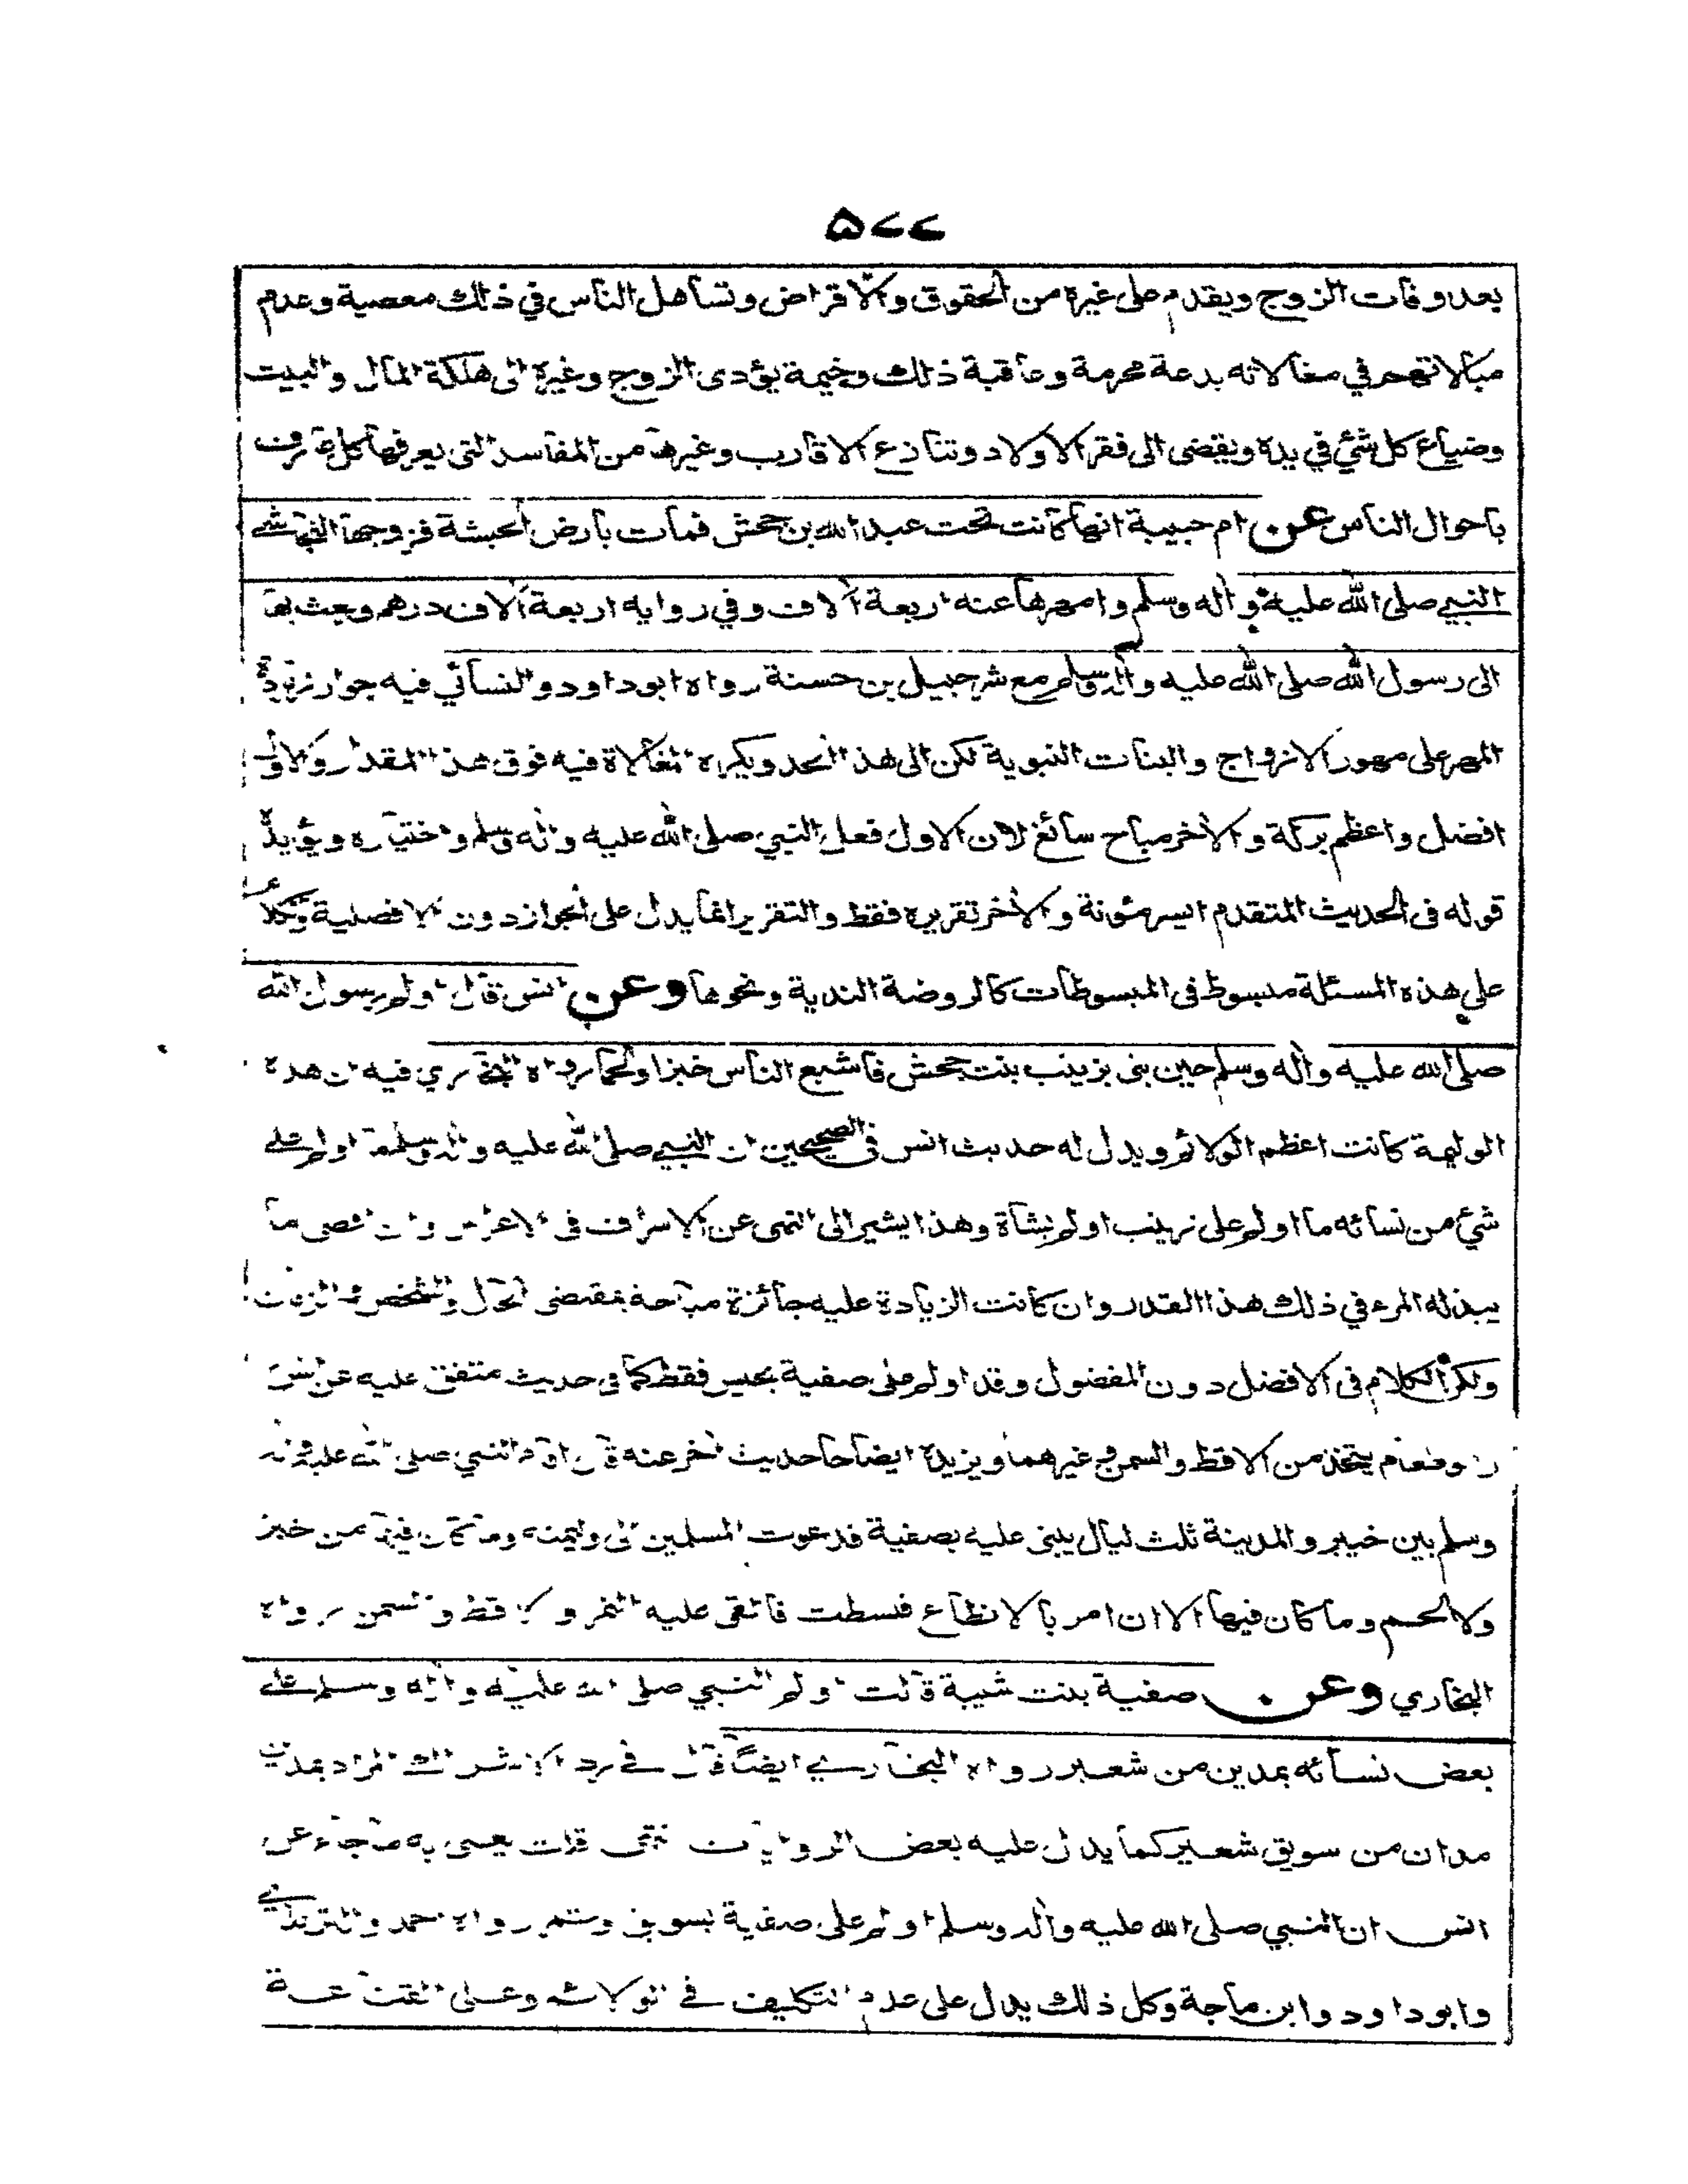 ۵۷۷
بعد وفات الزوج ويقدم على غيره من الحقوق والاقراض وتساهل الناس في ذلك معصية وعدم
مبالاتهم في مغالاته بدعة محرمة وعاقبة ذلك وخيمة يؤدى الزوج وغيره الى هلكة المال والبيت
وضياع كل شئ في يده ويفضى الى فقر الاولاد وتنازع الاقارب وغيرها من المفاسد التى يعرفها كل عارف
باحوال الناس عن ام حبيبة انها كانت تحت عبد الله بن جحش فمات بارض الحبشة فزوجها النجاشے
النبي صلى الله عليه وآله وسلم وامهرها عنه اربعة آلاف وفي رواية اربعة آلاف درهم وبعث بها
الى رسول الله صلى الله عليه وآله وسلم مع شرحبيل بن حسنة رواه ابوداود والنسائي فيه جواز زيادة
المهر على مهور الازواج والبنات النبوية لكن الى هذا الحد ويكره المغالاة فيه فوق هذا المقدار والاول
افضل واعظم بركة والآخر مباح سائغ لان الاول فعل النبي صلى الله عليه وآله وسلم واختياره ويؤيده
قوله فى الحديث المتقدم ايسر مئونة والآخر تقريره فقط والتقرير انما يدل على الجواز دون الافضلية
على هذه المسئلة مبسوط فى المبسوطات كالروضة الندية ونحوها وعن انس قال اولم رسول الله
صلى الله عليه وآله وسلم حين بنى بزينب بنت جحش فاشبع الناس خبزا ولحما رواه البخاري فيه ان هذه
الوليمة كانت اعظم الولائم ويدل له حديث انس فى الصحيحين ان النبي صلى الله عليه وآله وسلم ما اولم على
شئ من نسائه ما اولم على زينب اولم بشاة وهذا يشير الى النهى عن الاسراف فى الاعراس وان اقصى ما
يبذله المرء في ذلك هذا القدر وان كانت الزيادة عليه جائزة مباحة بمقتضى الحال والشخص والزمان
ولكن الكلام فى الافضل دون المفضول وقد اولم على صفية بحيس فقط كما فى حديث متفق عليه عن انس
وطعام يتخذ من الاقط والسمن وغيرهما ويزيده ايضاحا حديث آخر عنه قال اقام النبي صلى الله عليه وآله
وسلم بين خيبر والمدينة ثلث ليال يبنى عليه بصفية فدعوت المسلمين الى وليمته وما كان فيها من خبز
ولا لحم وما كان فيها الا ان امر بالانطاع فبسطت فالقى عليه التمر والاقط والسمن رواه
البخاري وعن صفية بنت شيبة قالت اولم النبي صلى الله عليه وآله وسلم على
بعض نسائه بمدين من شعير رواه البخاري ايضا قال في المراد بمدين
مدان من سويق شعير كما يدل عليه بعض الروايات انتهى قلت يعنى به ما جاء عن
انس ان النبي صلى الله عليه وآله وسلم اولم على صفية بسويق وتمر رواه احمد والترمذي
وابوداود وابن ماجة وكل ذلك يدل على عدم التكليف في الولائم وعلى القناعة